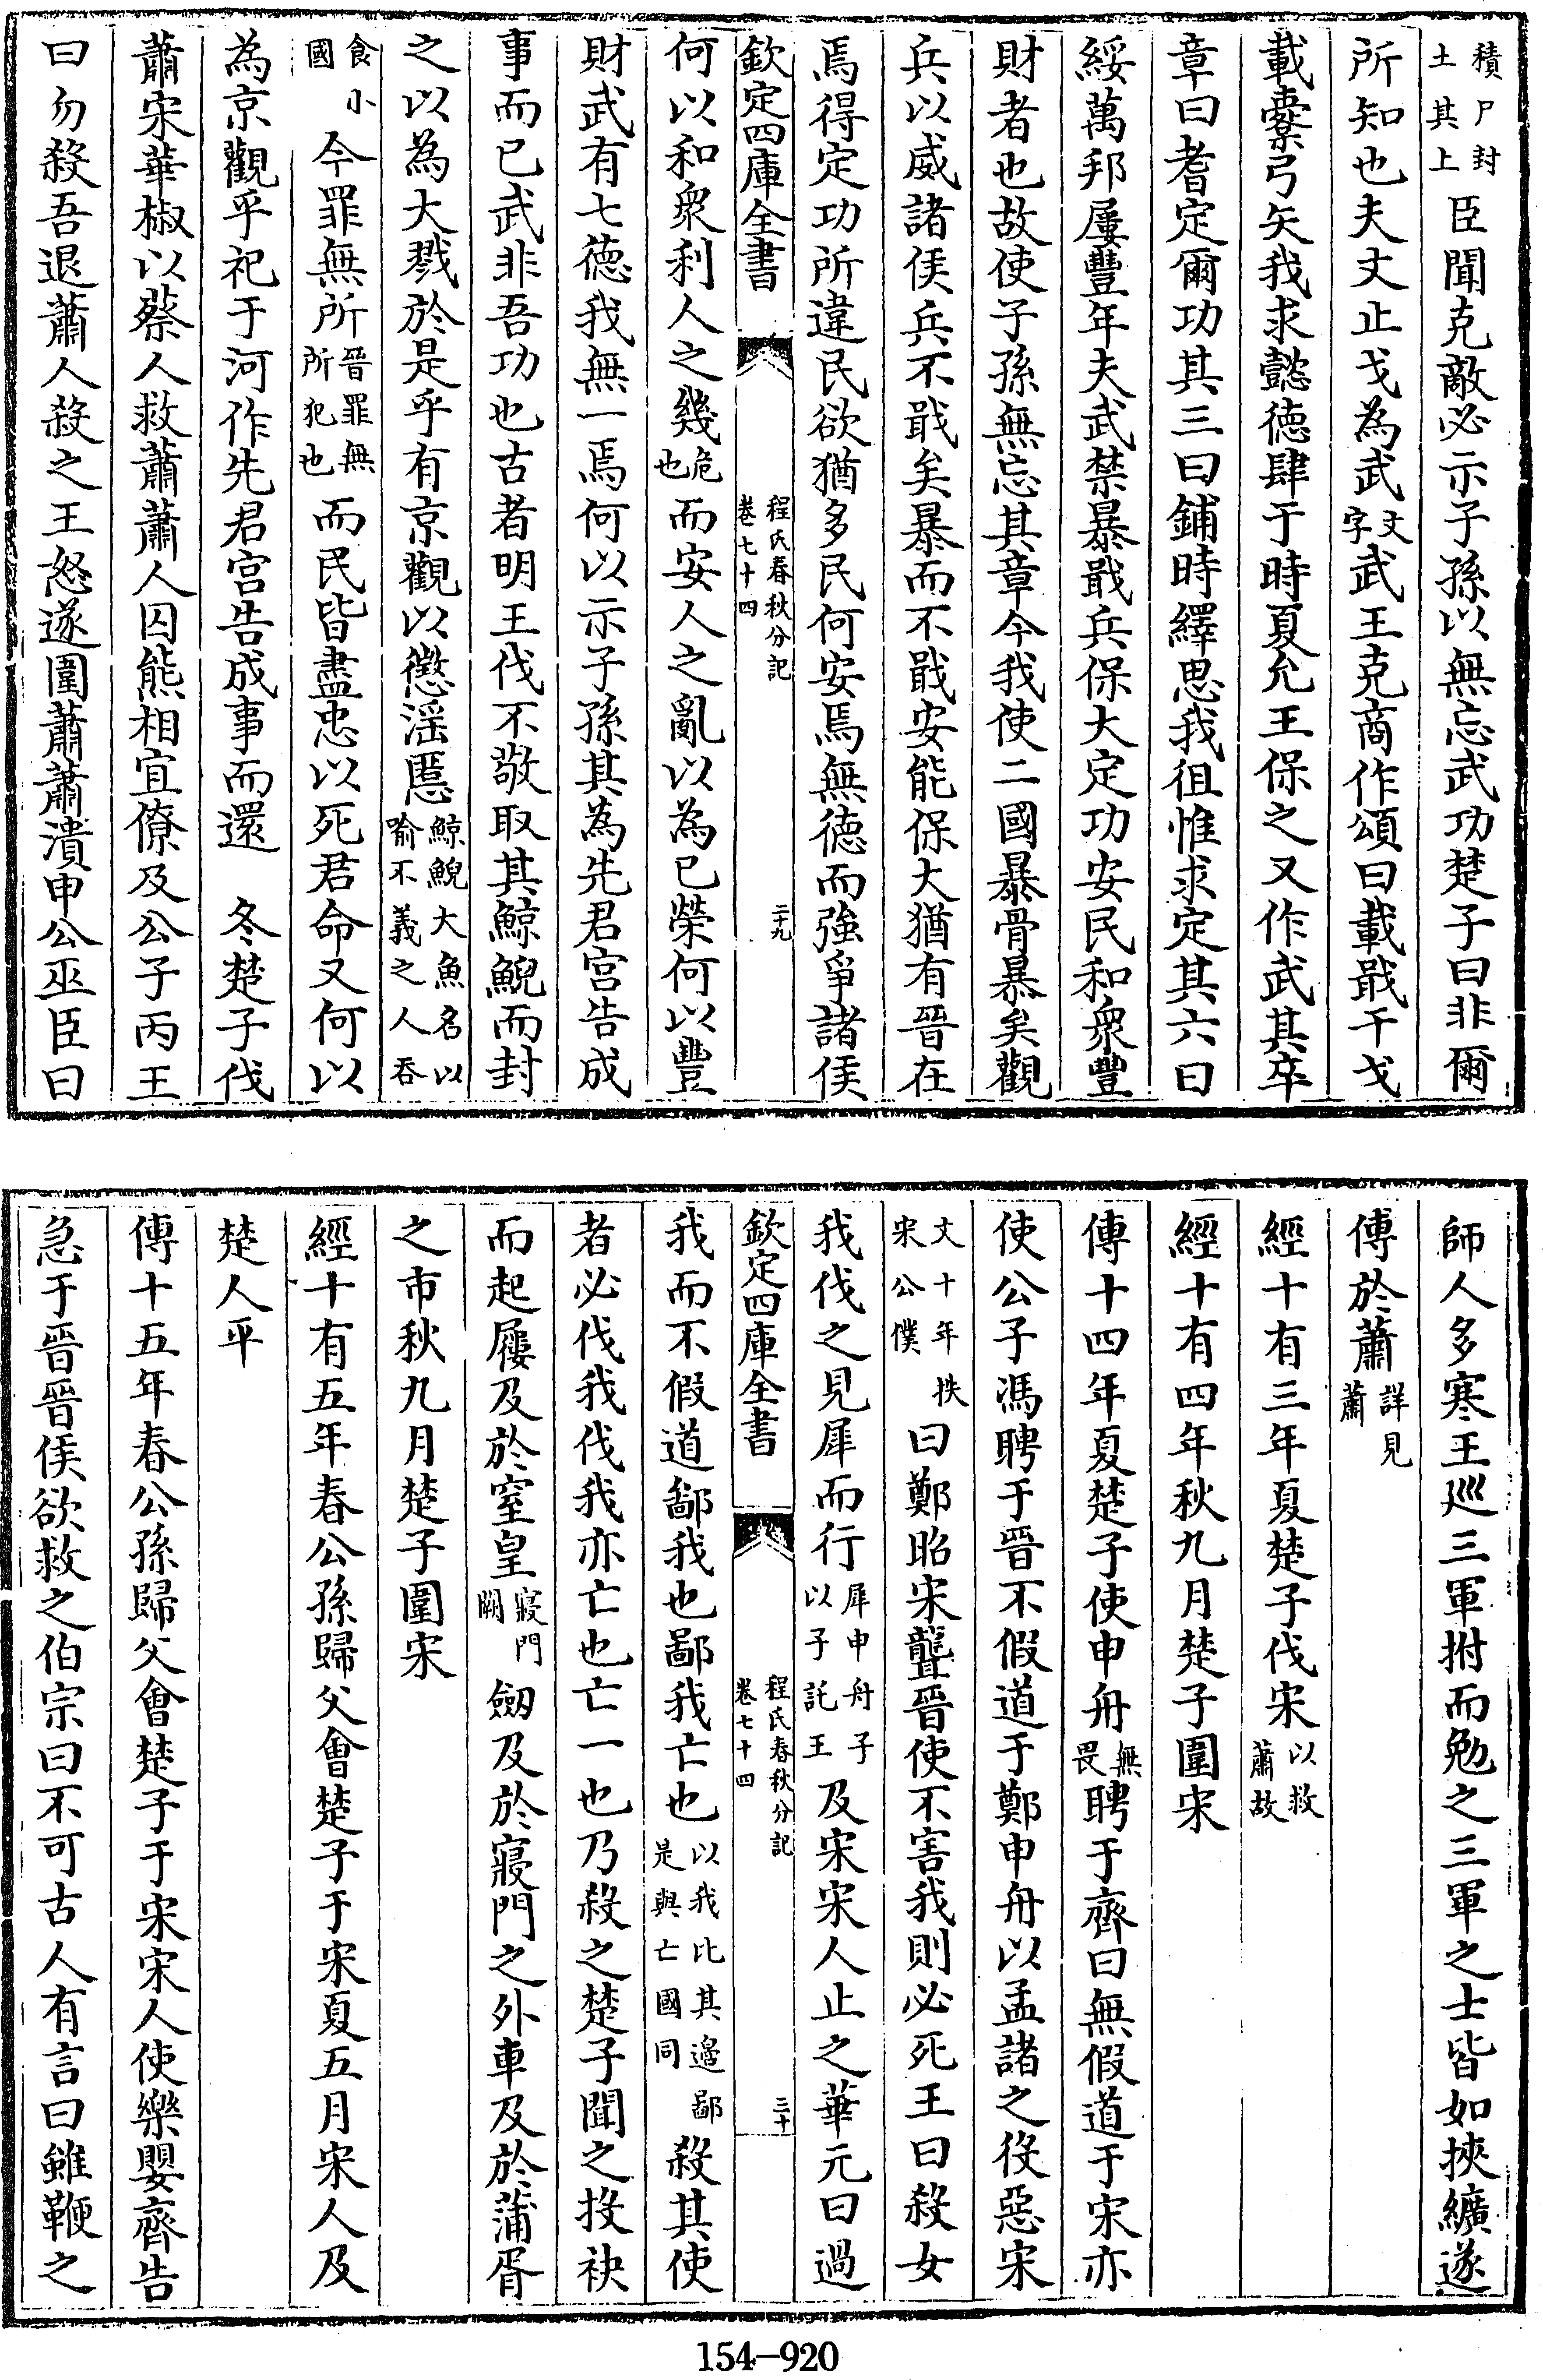 積尸封土其上臣聞克敵必示子孫以無忘武功楚子曰非爾
所知也夫文止戈為武文字武王克商作頌曰載戢干戈
載櫜弓矢我求懿德肆于時夏允王保之又作武其卒
章曰耆定爾功其三曰鋪時繹思我徂惟求定其六曰
綏萬邦屢豐年夫武禁暴戢兵保大定功安民和衆豐
財者也故使子孫無忘其章今我使二國暴骨暴矣觀
兵以威諸侯兵不戢矣暴而不戢安能保大猶有晉在
焉得定功所違民欲猶多民何安焉無德而強爭諸侯
欽定四庫全書 程氏春秋分記卷七十四 二十九
何以和衆利人之幾危也而安人之亂以為已榮何以豐
財武有七德我無一焉何以示子孫其為先君宫告成
事而已武非吾功也古者明王伐不敬取其鯨鯢而封
之以為大戮於是乎有京觀以懲淫慝鯨鯢大魚名以喻不義之人吞
食小國今罪無所晉罪無所犯也而民皆盡忠以死君命又何以
為京觀乎祀于河作先君宫告成事而還 冬楚子伐
蕭宋華椒以蔡人救蕭蕭人囚熊相宜僚及公子丙王
曰勿殺吾退蕭人殺之王怒遂圍蕭蕭潰申公巫臣曰
師人多寒王廵三軍拊而勉之三軍之士皆如挾纊遂
傅於蕭詳見蕭
經十有三年夏楚子伐宋以救蕭故
經十有四年秋九月楚子圍宋
傳十四年夏楚子使申舟無畏聘于齊曰無假道于宋亦
使公子馮聘于晉不假道于鄭申舟以孟諸之役惡宋
文十年抶宋公僕曰鄭昭宋聾晉使不害我則必死王曰殺女
我伐之見犀而行犀申舟子以子託王及宋宋人止之華元曰過
欽定四庫全書 程氏春秋分記卷七十四 三十
我而不假道鄙我也鄙我亡也以我比其邊鄙是與亡國同殺其使
者必伐我伐我亦亡也亡一也乃殺之楚子聞之投袂
而起屨及於窒皇寢門闕劒及於寢門之外車及於蒲胥
之市秋九月楚子圍宋
經十有五年春公孫歸父會楚子于宋夏五月宋人及
楚人平
傳十五年春公孫歸父會楚子于宋宋人使樂嬰齊告
急于晉晉侯欲救之伯宗曰不可古人有言曰雖鞭之
154-920